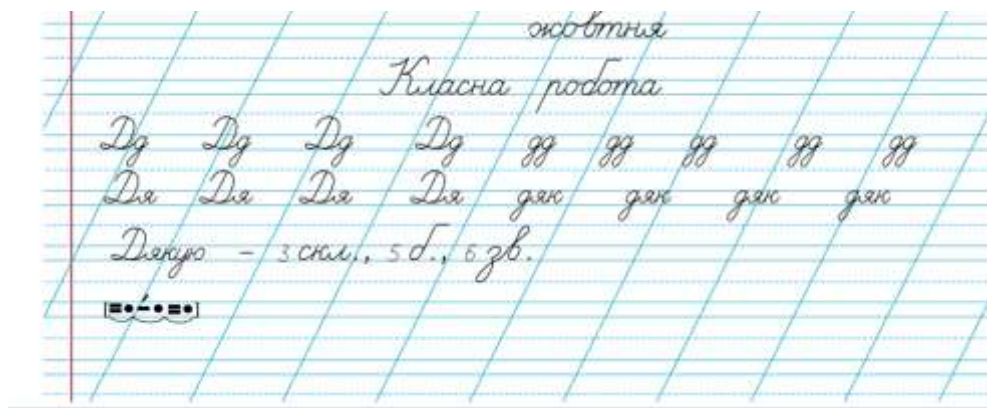 жовтня
Класна робота
Дд Дд Дд Дд дд дд дд дд дд
Дя Дя Дя Дя дяк дяк дяк дяк
Дякую – 3 скл., 5 б., 6 зв.